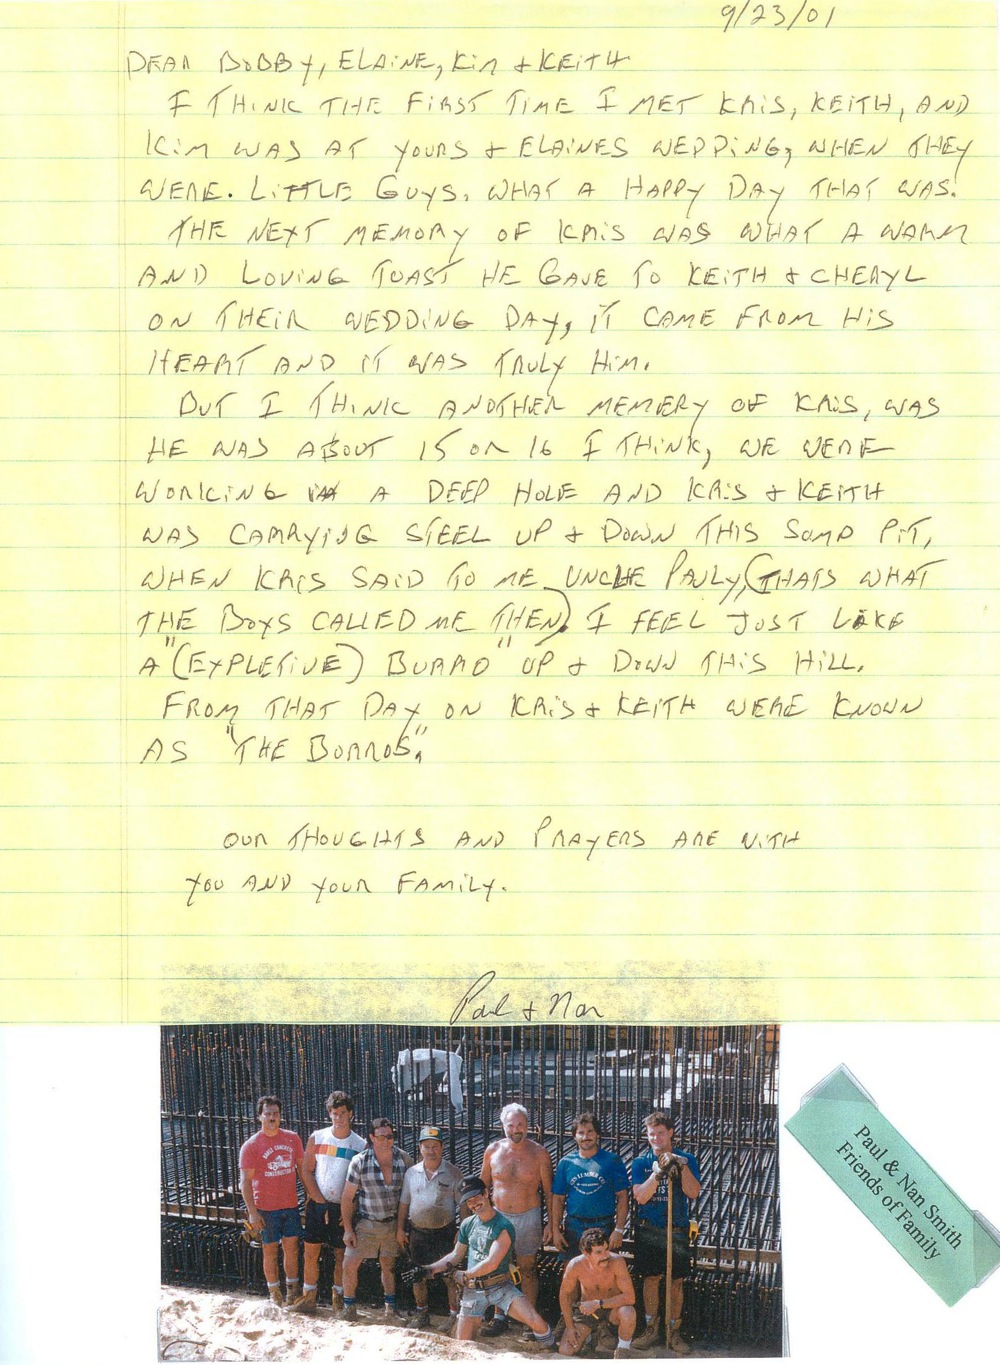 9/23/01
DEAR BOBBY, ELAINE, KIM & KEITH
I THINK THE FIRST TIME I MET KRIS, KEITH, AND
KIM WAS AT YOURS & ELAINES WEDDING, WHEN THEY
WERE. LITTLE GUYS. WHAT A HAPPY DAY THAT WAS.
THE NEXT MEMORY OF KRIS WAS WHAT A WARM
AND LOVING TOAST HE GAVE TO KEITH & CHERYL
ON THEIR WEDDING DAY, IT CAME FROM HIS
HEART AND IT WAS TRULY HIM.
BUT I THINK ANOTHER MEMERY OF KRIS, WAS
HE WAS ABOUT 15 OR 16 I THINK, WE WERE
WORKING A DEEP HOLE AND KRIS & KEITH
WAS CARRYING STEEL UP & DOWN THIS SUMP PIT,
WHEN KRIS SAID TO ME UNCLE PAULY, (THATS WHAT
THE BOYS CALLED ME THEN). I FEEL JUST LIKE
A "(EXPLETIVE) BURRO" UP & DOWN THIS HILL.
FROM THAT DAY ON KRIS & KEITH WERE KNOWN
AS "THE BURROS".
OUR THOUGHTS AND PRAYERS ARE WITH
YOU AND YOUR FAMILY.
Paul & Nan
Paul & Nan Smith
Friends of Family